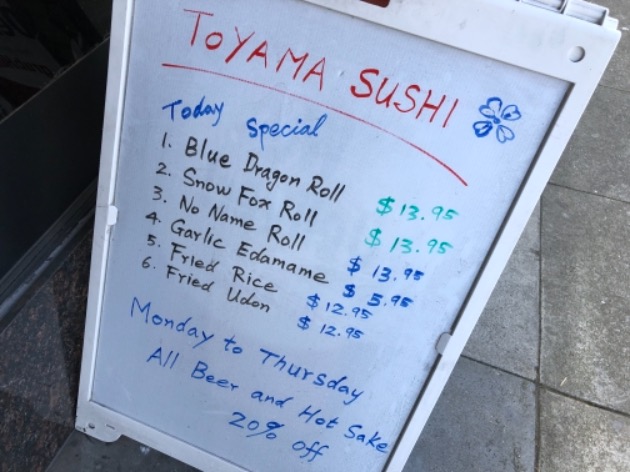 TOYAMA SUSHI
Today Special
1. Blue Dragon Roll $13.95
2. Snow Fox Roll $13.95
3. No Name Roll $13.95
4. Garlic Edamame $5.95
5. Fried Rice $12.95
6. Fried Udon $12.95
Monday to Thursday
All Beer and Hot Sake
20% off